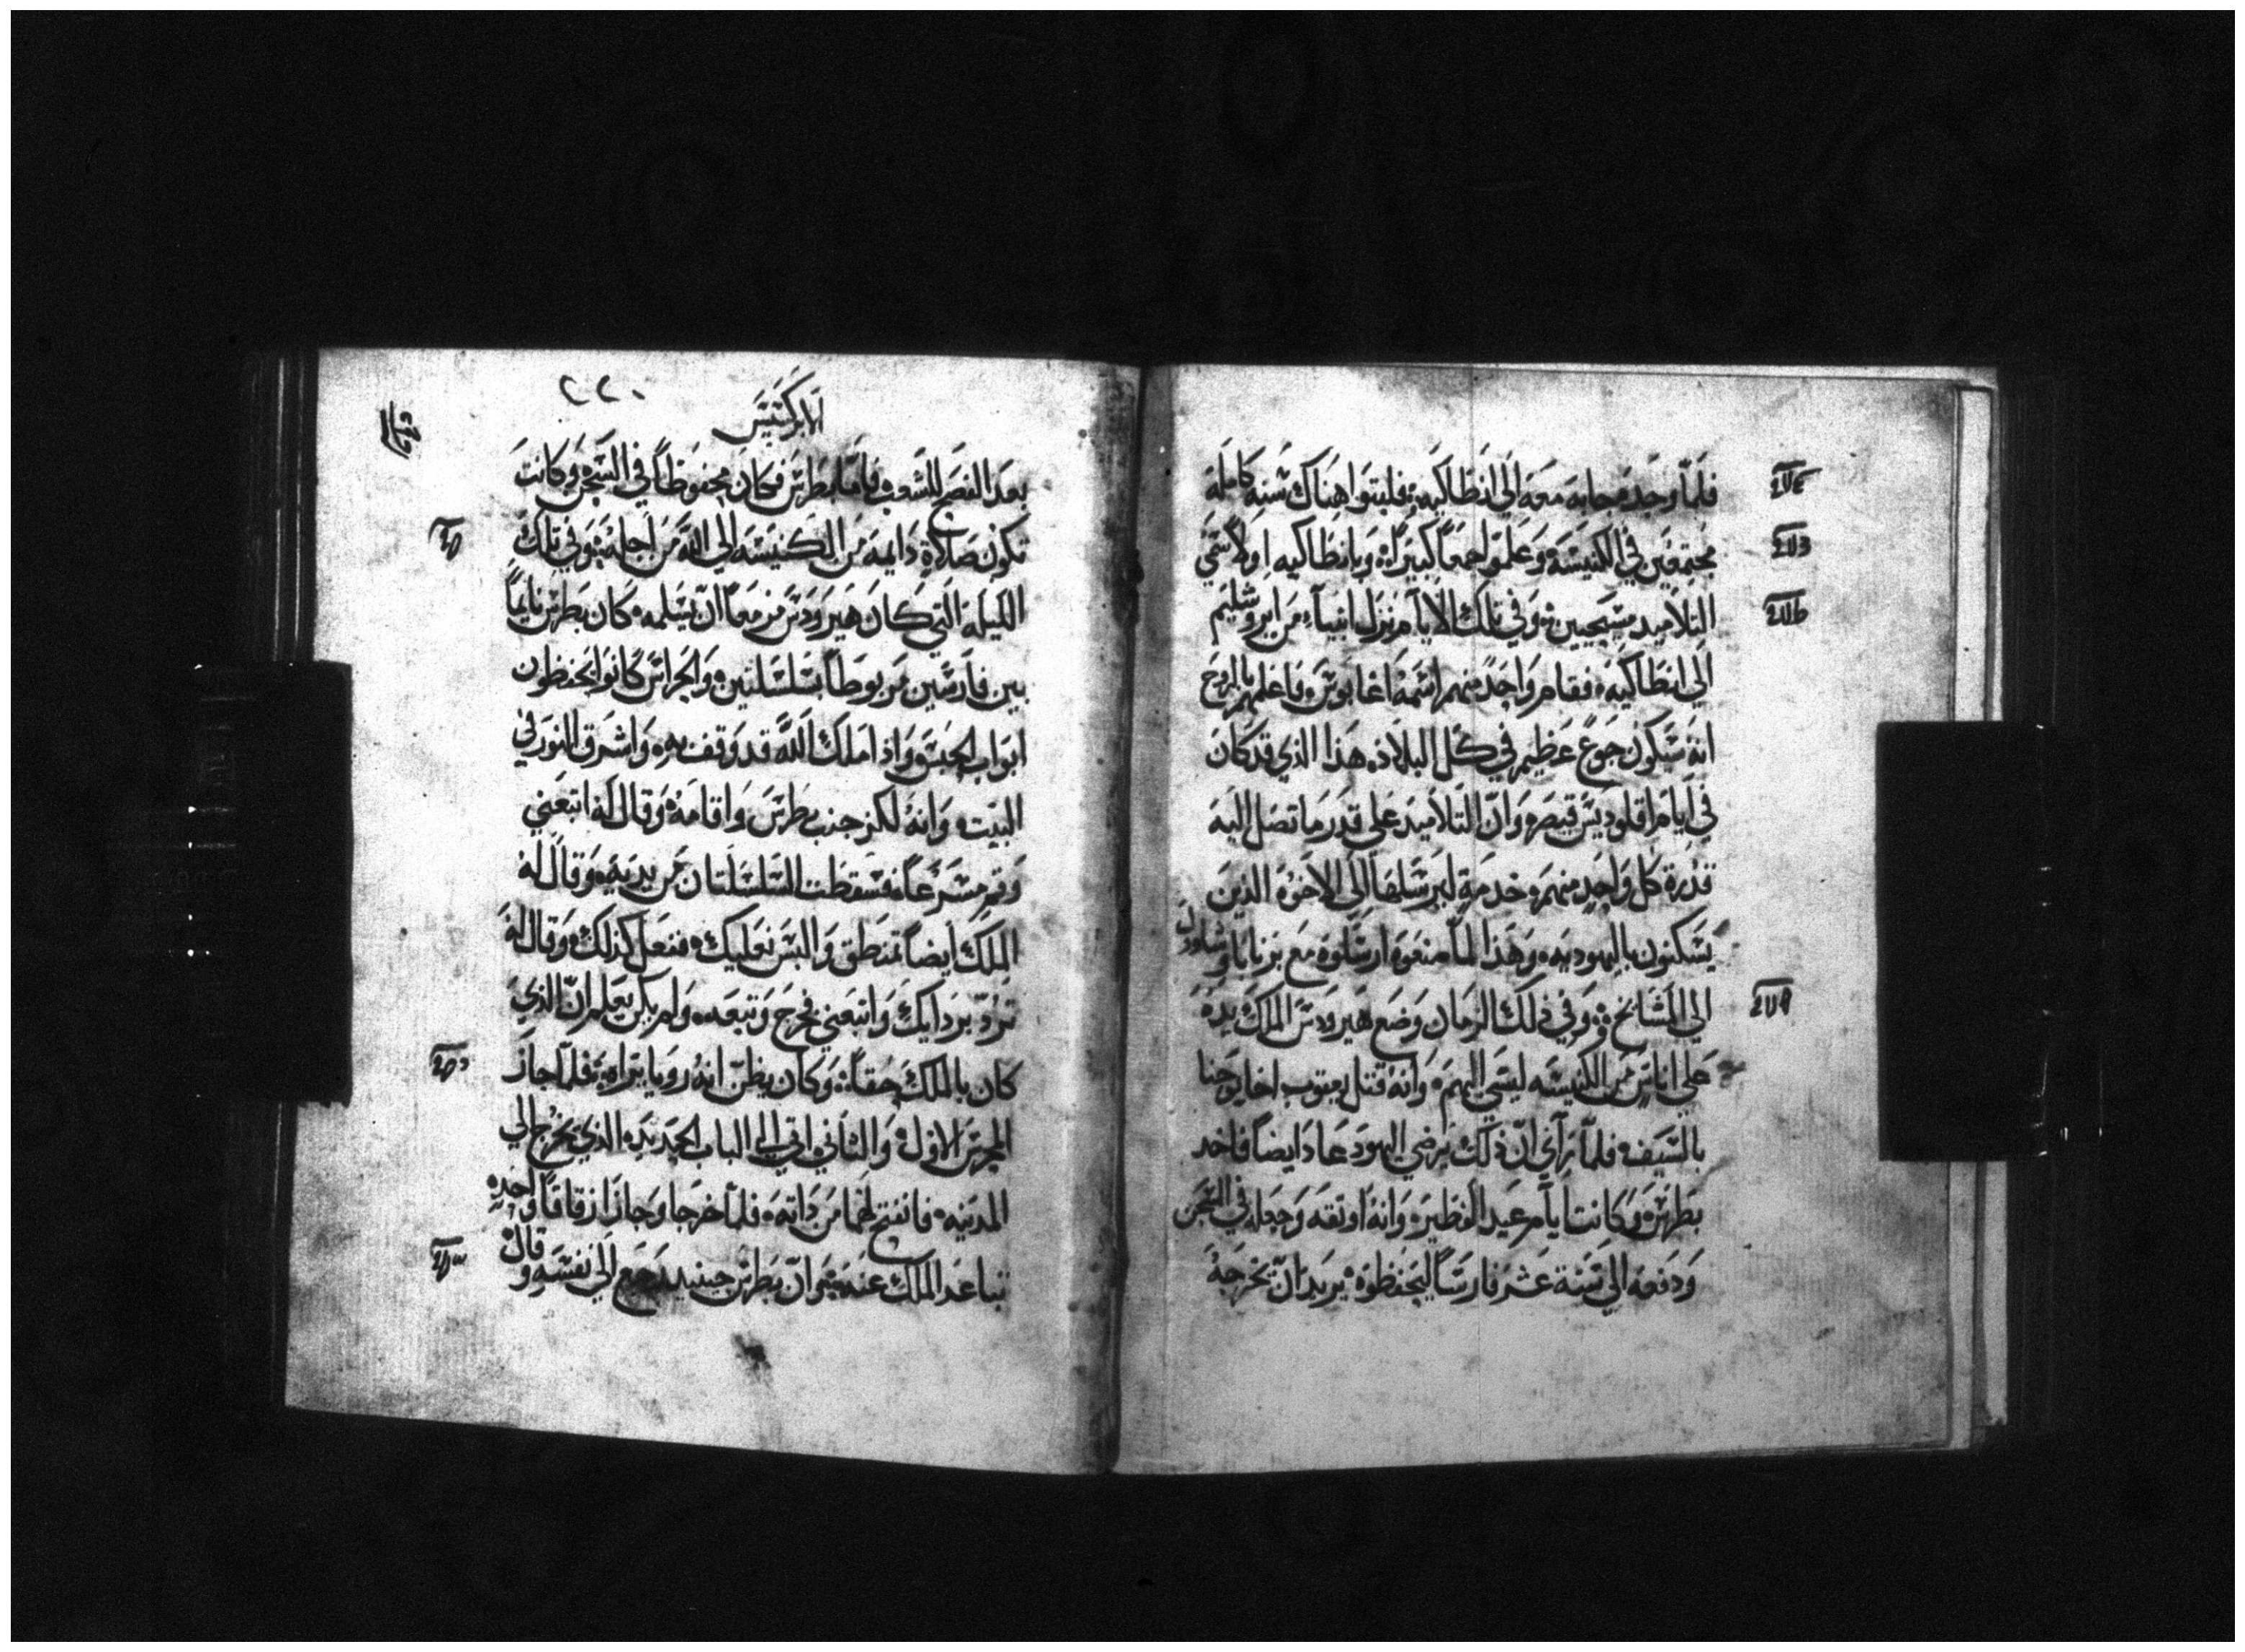 فلما وجده جابه معه الي انطاكيه فلبتوا هناك سنه كامله
مجتمعين في الكنيسه وعلموا جمعاً كبيراً وبانطاكيه اولاً سمي
التلاميد مسيحيين وفي تلك الايام نزل انبياء من ايروشليم
الي انطاكيه فقام واحد منهم اسمه اغابوس فاعلمهم بالروح
انه سيكون جوع عظيم في كل البلاد هذا الذي قد كان
في ايام اقلوديس قيصر وان التلاميد علي قدر ما تصل اليه
قدرة كل واحد منهم خدمة ليرسلها الي الاخوه الذين
يسكنون باليهوديه وهذا لما صنعوه ارسلوه مع برنابا وشاوول
الي المشايخ وفي ذلك الزمان وضع هيرودس الملك يده
علي اناس من الكنيسه ليسي اليهم وانه قتل يعقوب اخا يوحنا
بالسيف فلما راي ان ذلك يرضي اليهود عاد ايضاً فاخد
بطرس وكانت ايام عيد الفطير وانه اوثقه وجعله في السجن
ودفعه الي ستة عشر فارساً ليحفظوه يريد ان يخرجه
٢٢٠
الابركسيس
بعد الفصح للشعب فاما بطرس فكان محفوظاً في السجن وكانت
تكون صلاة دايمه من الكنيسه الي الله من اجله وفي تلك
الليله التي كان هيرودس مزمعاً ان يسلمه كان بطرس نايماً
بين فارسين مربوطاً بسلسلتين والحراس كانوا يحفظون
ابواب الحبس واذا ملاك الله قد وقف به واشرق النور في
البيت وانه لكز جنب بطرس واقامه وقال له اتبعني
وقم مسرعاً فسقطت السلسلتان من يديه وقال له
الملك ايضاً تمنطق والبس نعليك ففعل كذلك وقال له
تردّ بردايك واتبعني فخرج وتبعه ولم يكن يعلم ان الذي
كان بالملك حقاً وكان يظن انه رويا يراه فلما جاز
المحرس الاول والثاني اتي الي الباب الحديد الذي يخرج الي
المدينه فانفتح لهما من ذاته فلما خرجا وجازا زقاقاً واحده
تباعد الملك عنه ثم ان بطرس حينيد رجع الي نفسه وقال